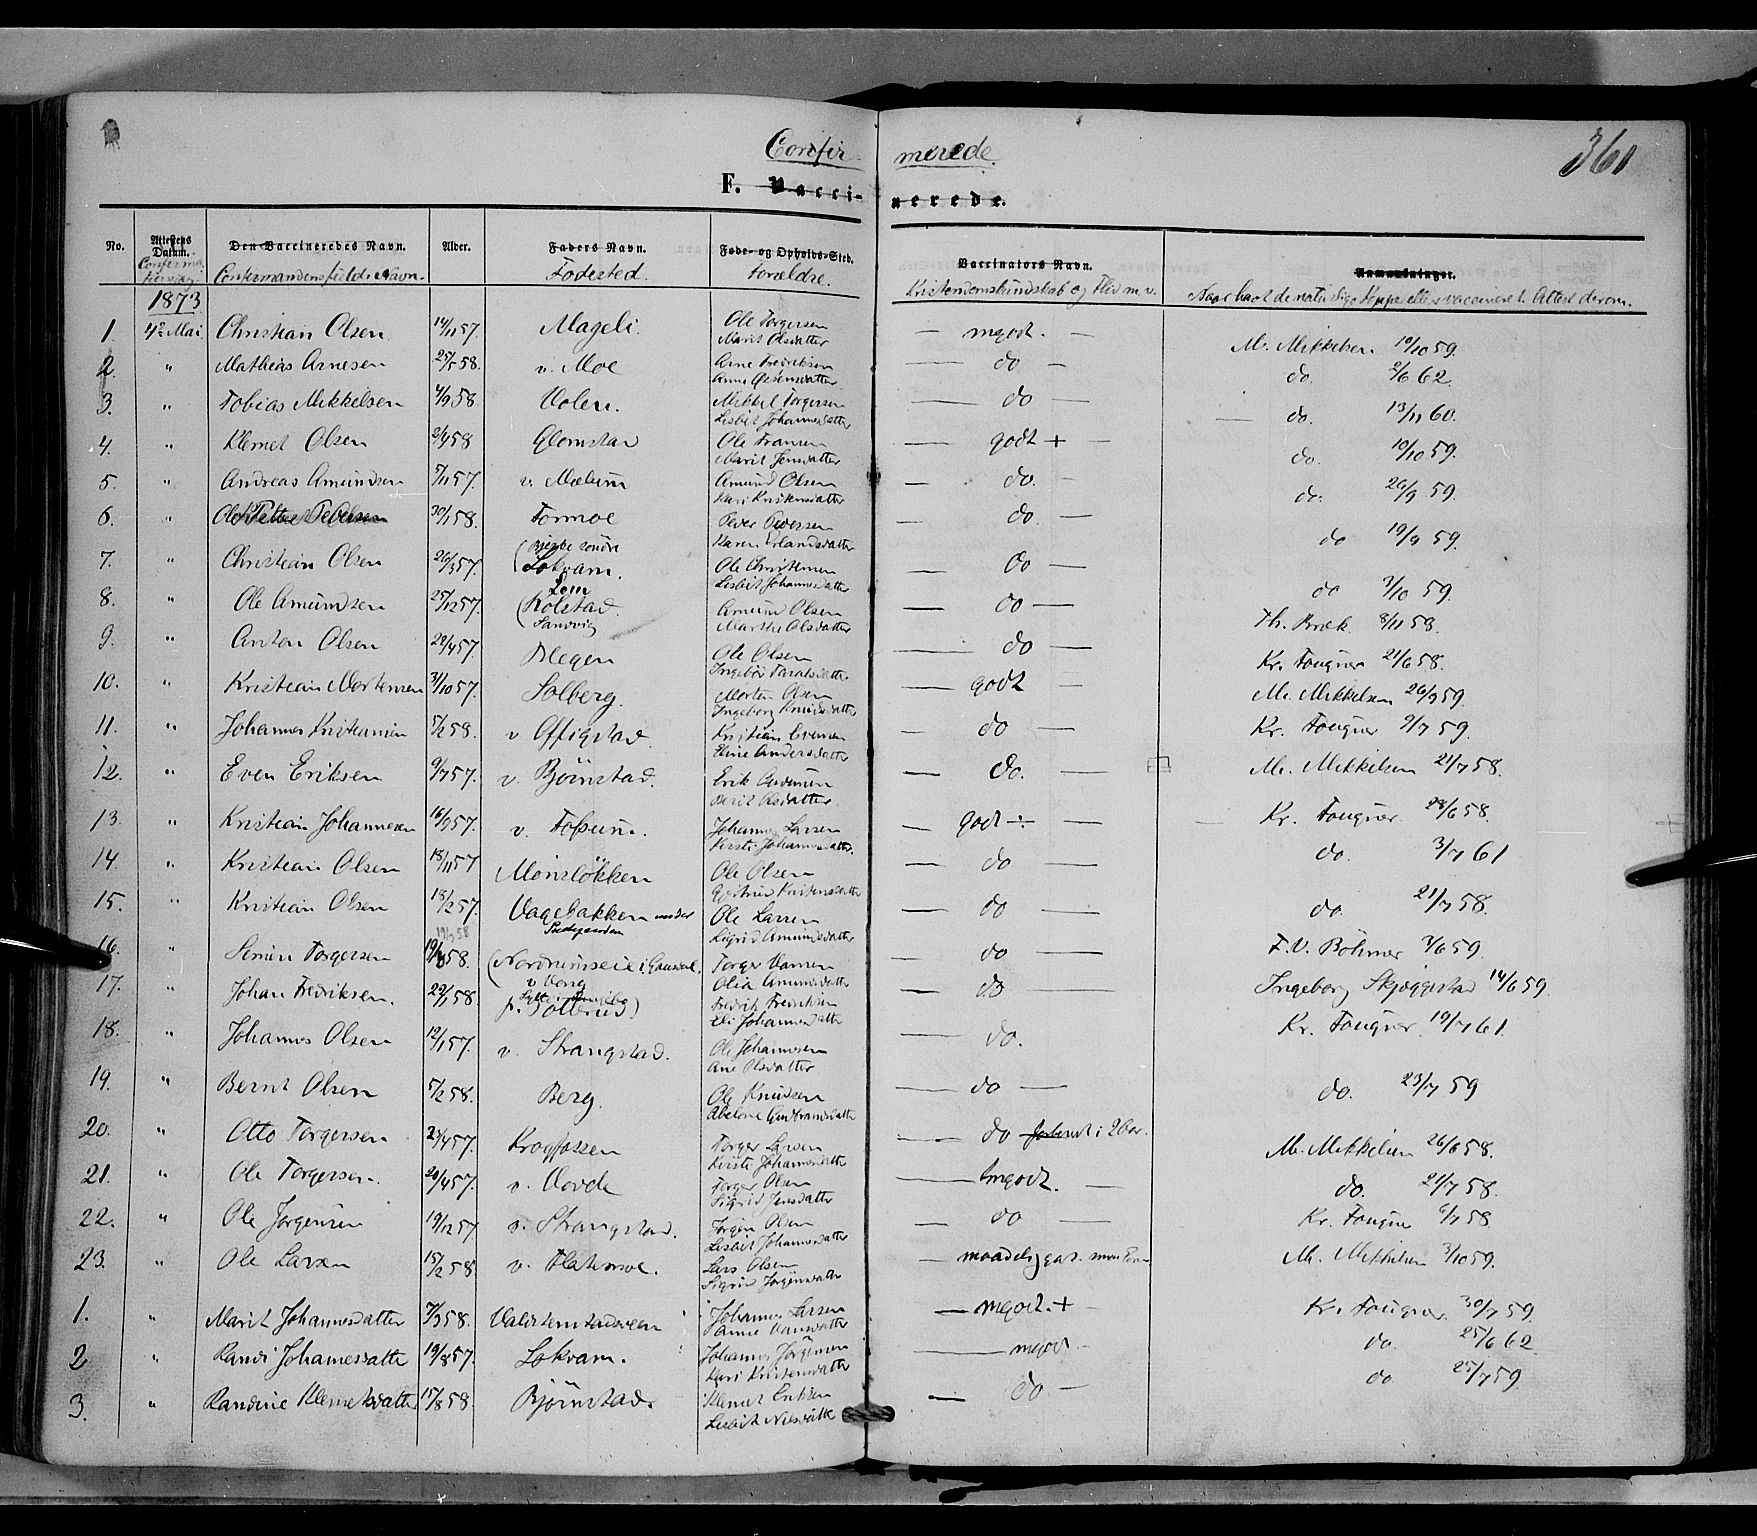 Confir- merede.
361
F. Vacci- nerede.
No. Attestens Datum. Den Vaccineredes Navn. Alder. Faders Navn. Føde- og Opholds-Sted. Vaccinators Navn. Anmærkninger.
Confirmandens fulde Navn. Fødested. Forældre. Kristendomskundskab og Flid m.v. Naar havt de naturlige Kopper eller vaccineret. Attest derom.
1873
1. 4de Mai Christian Olsen 14/11 57. Mageli Ole Torgersen Marit Olsdatter mgodt. M. Mikkelsen 10/10 59.
2. " Mathias Arnesen 25/5 58. v. Moe Arne Fredriksen Anne do do. 2/6 62.
3. " Tobias Mikkelsen 4/9 58 Volen. Mikkel Torgersen Lisbet Johannesdatter do do. 13/11 60.
4. " Klemet Olsen 2/4 58 Glomstad Ole Fransen Marit Jensdatter godt + do. 10/10 59.
5. " Andreas Amundsen 5/11 57. v. Mælum Amund Olsen Kari Kristensdatter do. do. 26/9 59.
6. " Ole Petter Pedersen 30/1 58. Formoe Peder Pedersen Karen Erlandsdatter do. do 19/9 59.
7. " Christian Olsen 26/3 57. søndre Lokvam. Ole Christensen Lisbet Johannesdatter do do 3/10 59.
8. " Ole Amundsen 25/12 57. Lem Kolstad Sandvig Amund Olsen Marthe Olsdatter do Th. Bræk 8/11 58.
9. " Anton Olsen 29/4 57. Flegen Ole Olsen Ingebor do Kr. Fougner 21/6 58.
10. " Kristian Mortensen 31/10 57. Solberg. Morten Olsen Ingeborg Knudsdatter godt M. Mikkelsen 26/9 59.
11. " Johannes Kristiansen 5/2 58. v Offigstad. Kristian Evensen Eline Andersdatter do Kr. Fougner 9/7 59.
12. " Even Eriksen 9/7 57. v. Bjørnstad. Erik Andersen Berit Olsdatter do. M. Mikkelsen 21/7 58.
13. " Kristian Johannesen 16/9 57. v. Fossum. Johannes Larsen Kersti Johannesdatter. godt ÷ Kr. Fougner. 28/6 58.
14. " Kristian Olsen 18/11 57 Monsløkken Ole Olsen Kristensdatter do do. 3/7 61
15. " Kristian Olsen 18/2 57. Vagebakken under Præstgaarden Ole Larsen Sigrid Amundsdatter do do. 21/7 58.
16. " Simen Torgersen 19/3 58. 19/3 58 Nordrumseie i Gausdal. Torger Olia Amundsdatter do F.V. Böhmer 3/6 59.
17. " Johan Fredriksen. 22/1 58. Fredrik Fredriksen Eli Johannesdatter do Ingeborg Skjæggestad 14/6 59.
18. " Johannes Olsen 12/1 57. v. Strangstad. Ole Johannesen Ane Olsdatter do. Kr. Fougner 19/7 61.
19. " Bernt Olsen 5/2 58. Berg. Ole Knudsen Abelone Gudbrandsdatter do do. 23/7 59
20. " Otto Torgersen 24/4 57. Krogfossen Torger Larsen Kersti Johannesdatter do i 2 M. Mikkelsen 26/6 58.
21. " Ole Torgersen. 20/4 57. v. Torger Olsen Sigrid Jensdatter mgodt. do. 21/7 58.
22. " Ole Jørgensen 19/12 57. v. Strangstad. Jørgen Olsen Lisbet Johannesdatter do Kr. Fougner 6/7 58
23. " Ole Larsen 15/2 58. v. Flatemoe. Lars Olsen Sigrid Jørgensdatter M. Mikkelsen 3/10 59.
1. " Marit Johannesdatter 7/3 58. Johannes Larsen mgodt. + Kr. Fougner 30/7 59.
2 " Randi Johannesdatter 19/8 57. Lokvam. Johannes Jørgensen Kari Kristensdatter mgodt do. 25/6 62
3. " Randine Klemetsdatter 15/8 58. Bjørnstad. Klemet Eriksen Lisbet Nilsdatter do do 25/7 59.